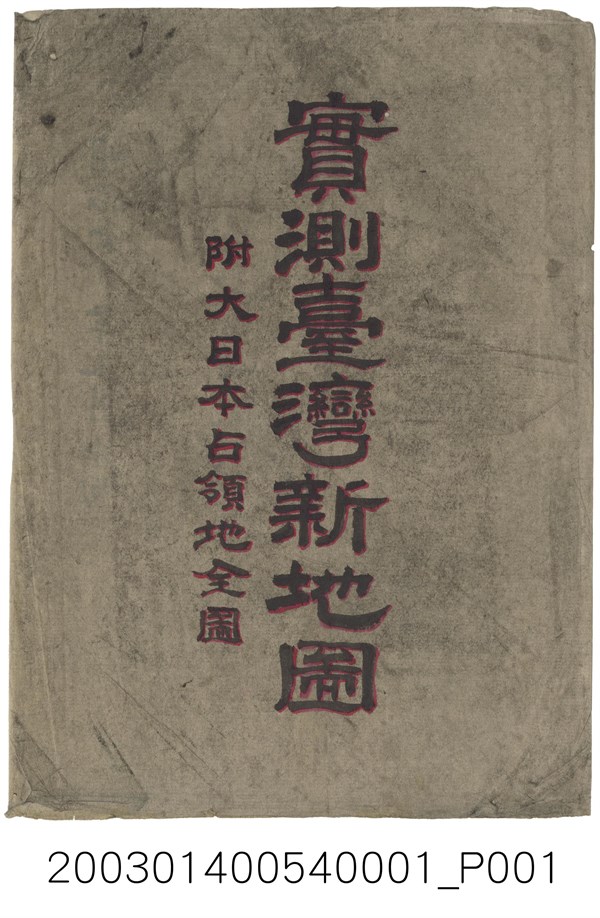 實測臺灣新地圖
附大日本占領地全圖
200301400540001_P001